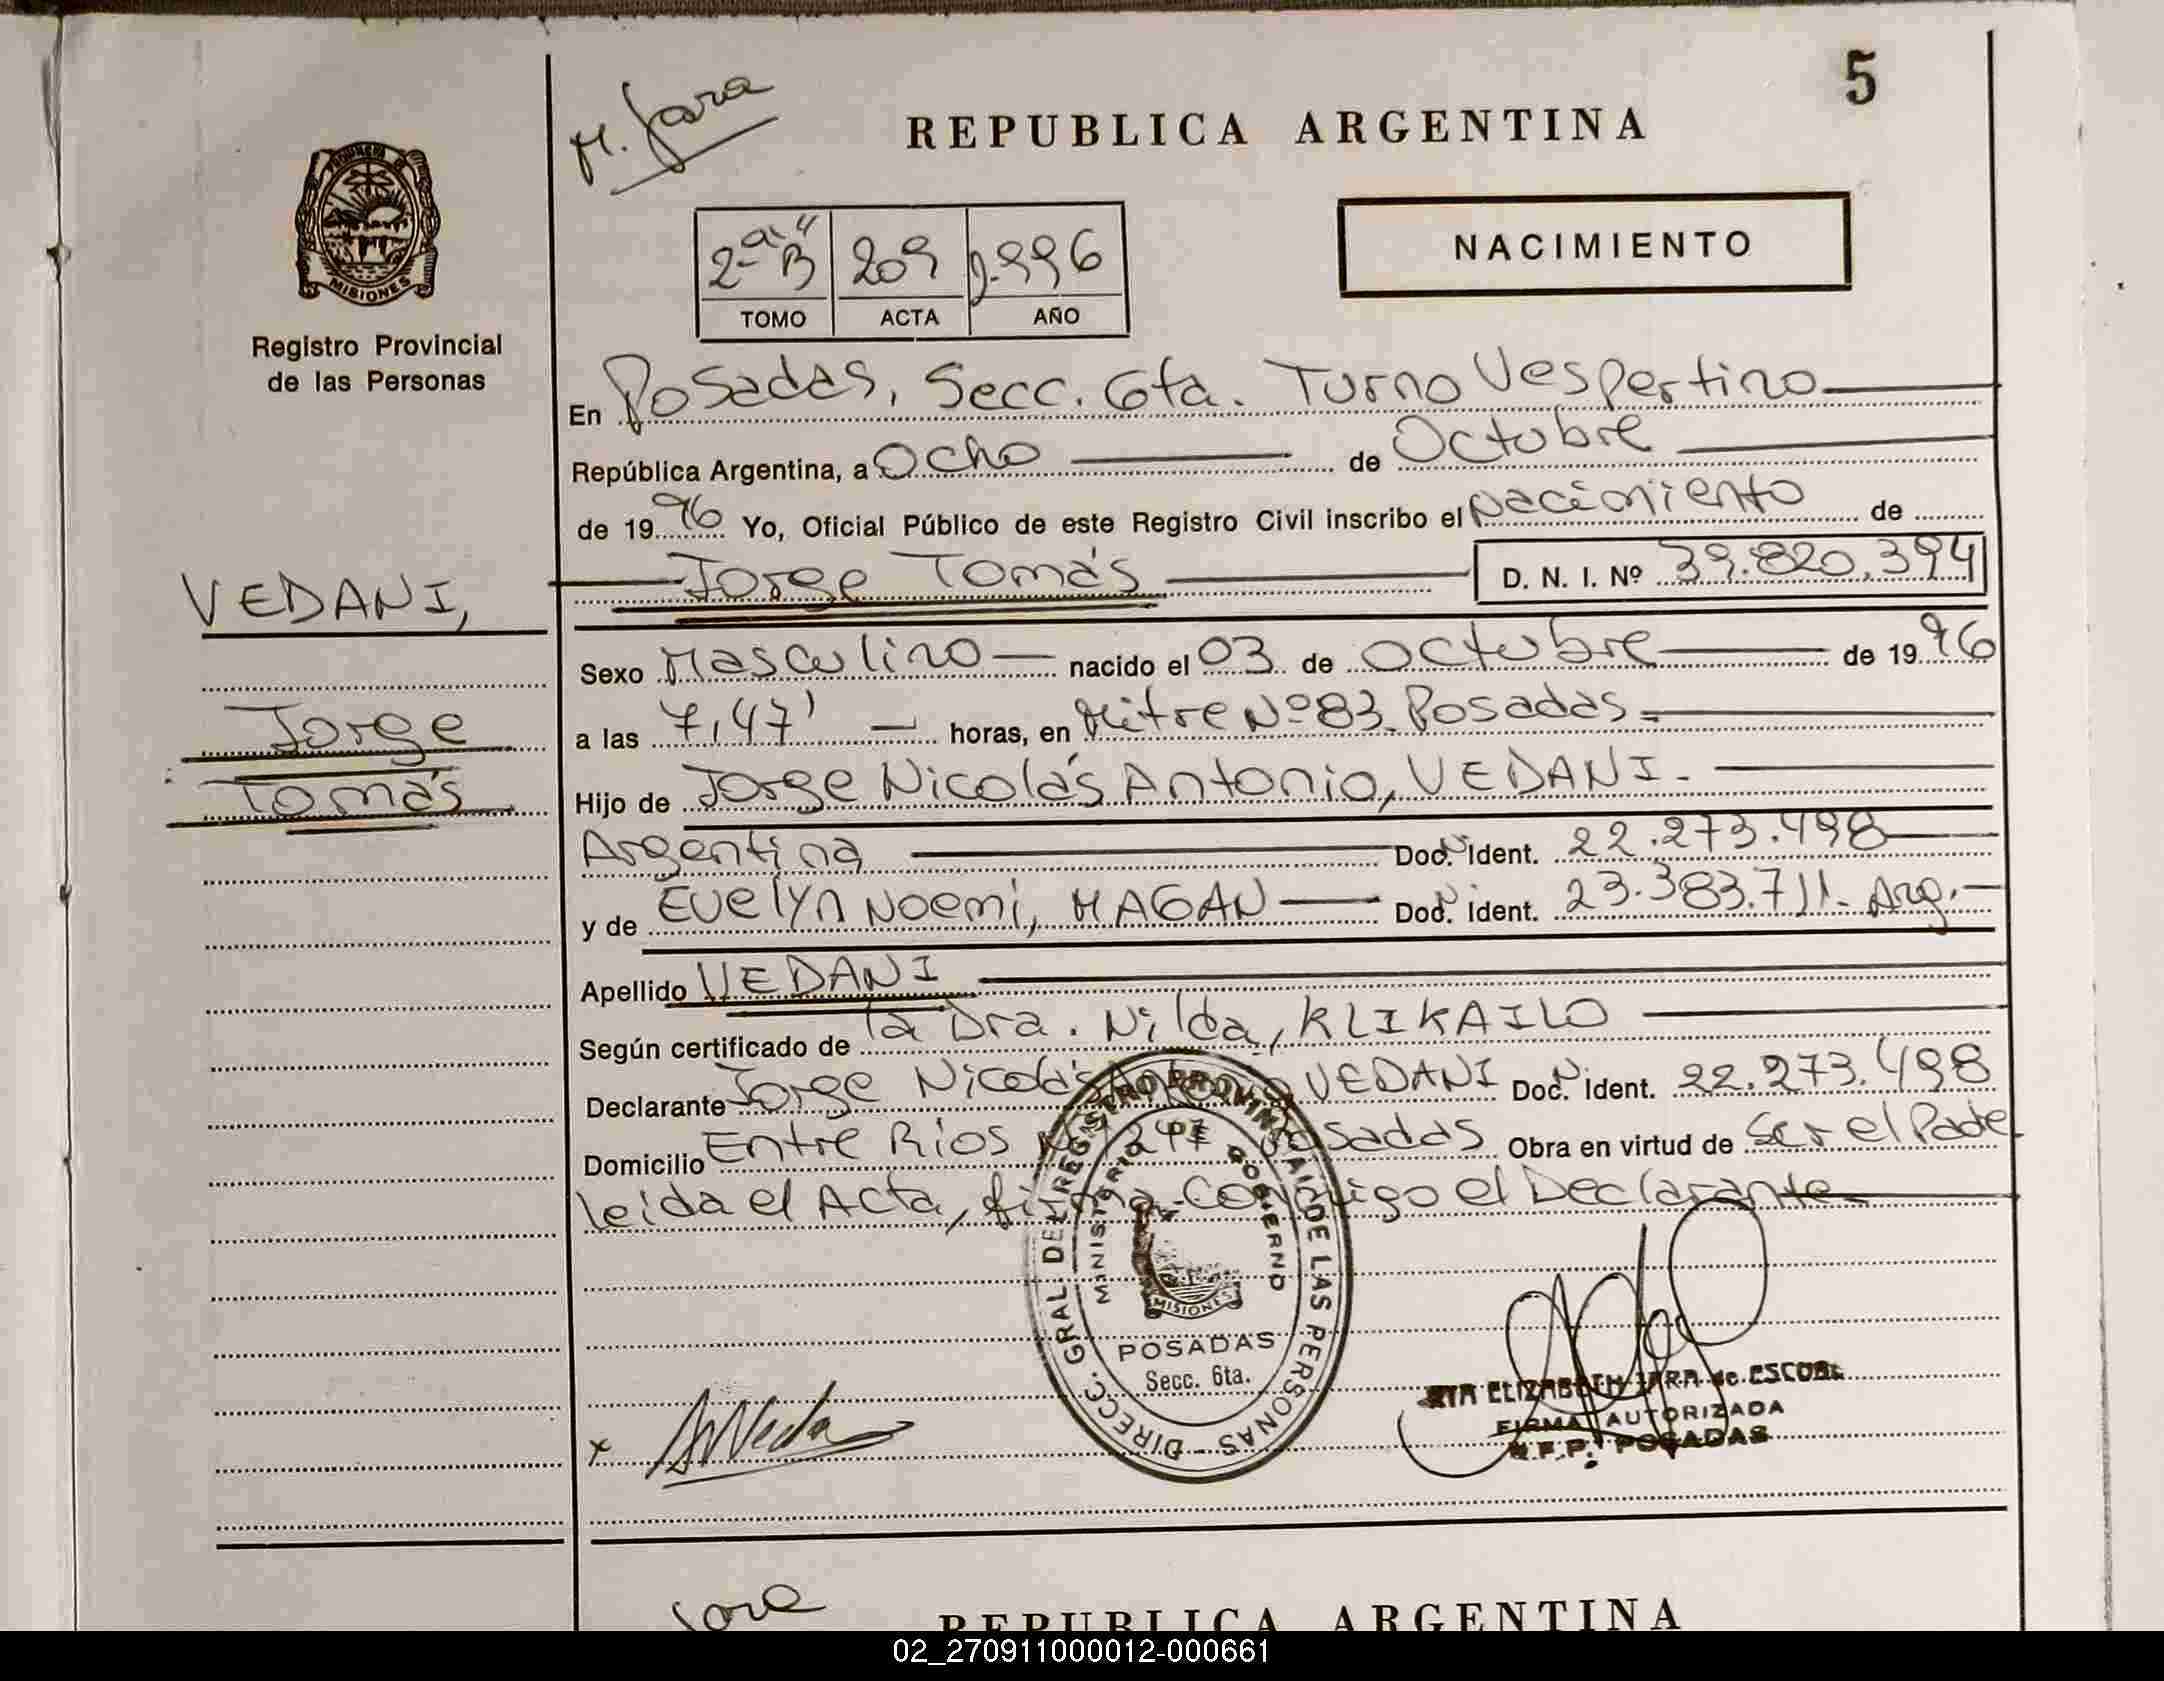 5
M. Jara
REPUBLICA ARGENTINA
MISIONES
Registro Provincial
de las Personas
2ª "B" 209 1.996
TOMO ACTA AÑO
NACIMIENTO
En Posadas, Secc. 6ta. Turno Vespertino
República Argentina, a Ocho de Octubre
de 1996 Yo, Oficial Público de este Registro Civil inscribo el Nacimiento de
Jorge Tomás D. N. I. Nº 39.820.394
VEDANI,
Jorge
Tomás
Sexo Masculino nacido el 03 de Octubre de 1996
a las 7,47' horas, en Mitre Nº 83 Posadas
Hijo de Jorge Nicolás Antonio, VEDANI.
Argentina Doc. Ident. 22.273.498
y de Evelyn Noemi, MAGAN Doc. Ident. 23.383.711. Arg.
Apellido VEDANI
Según certificado de la Dra. Nilda, KLIKAILO
Declarante Jorge Nicolás Antonio VEDANI Doc. Ident. 22.273.498
Domicilio Entre Rios Posadas Obra en virtud de Ser el Padre
leida el Acta, firma conmigo el Declarante
DIRECC. GRAL. DEL REGISTRO PROVINCIAL DE LAS PERSONAS
MINISTERIO DE GOBIERNO
MISIONES
POSADAS
Secc. 6ta.
x
ELIZABETH JARA de ESCOBAR
FIRMA AUTORIZADA
R.P.P. POSADAS
Jara
REPUBLICA ARGENTINA
02_270911000012-000661